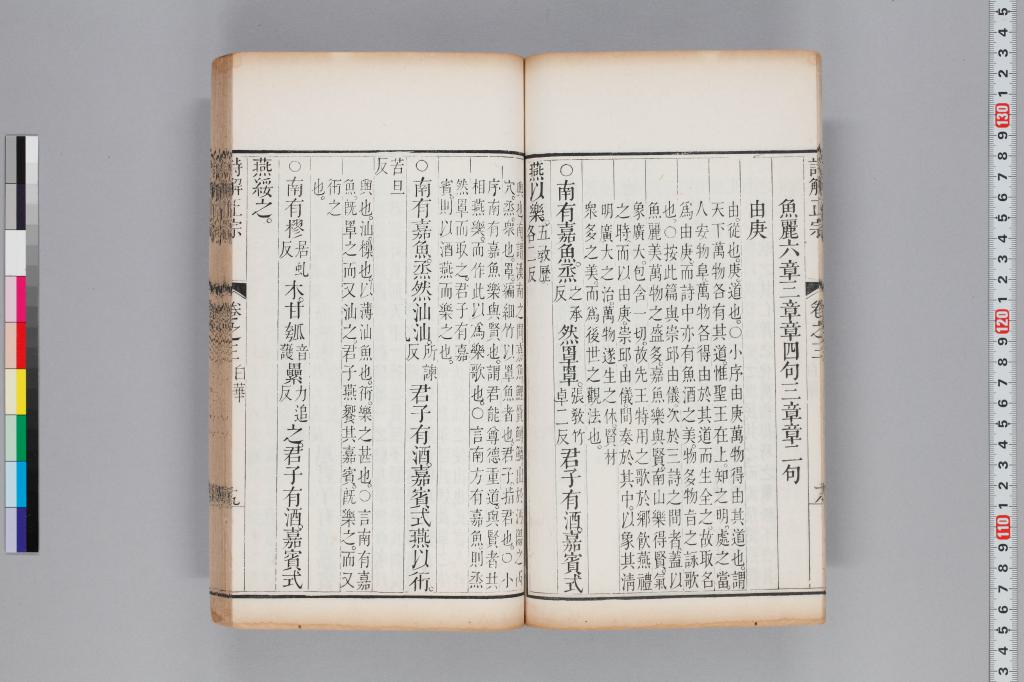 魚麗六章三章章四句三章章二句
由庚
由從也。庚道也。○小序由庚萬物得由其道也。謂
天下萬物各有其道惟聖王在上。知之明。處之當。
人安物阜萬物各得由於其道而生全之故取名
爲由庚。而詩中亦有魚酒之美。物多物旨之詠歌
也。○按此篇與崇邱由儀次於三詩之間者。蓋以
魚麗美萬物之盛多。嘉魚樂與賢。南山樂得賢。氣
象廣大。包含一切。故先王特用之歌於鄉飲燕禮
之時。而以由庚崇邱由儀間奏於其中。以象其清
明廣大之治。萬物遂生之休。賢材
衆多之美。而爲後世之觀法也。
○南有嘉魚。烝之承反然罩罩。張教竹卓二反君子有酒。嘉賓式
燕以樂。五教歷各二反
序南有嘉魚樂與賢也。謂君能尊德重道。與賢者共
相燕樂。而作此以爲樂歌也。○言南方有嘉魚則烝
然罩而取之。君子有嘉
賓。則以酒燕而樂之也。
○南有嘉魚。烝然汕汕。所諫反君子有酒。嘉賓式燕以衎。
苦旦反
興也。汕樔也。以薄汕魚也。衎。樂之甚也。○言南有嘉
魚。既罩之而又汕之君子燕饗其嘉賓。既樂之。而又
衎之
也。
○南有樛居虬反木。甘瓠音護纍力追反之。君子有酒。嘉賓式
燕綏之。
詩解正宗 卷之三 白華 九